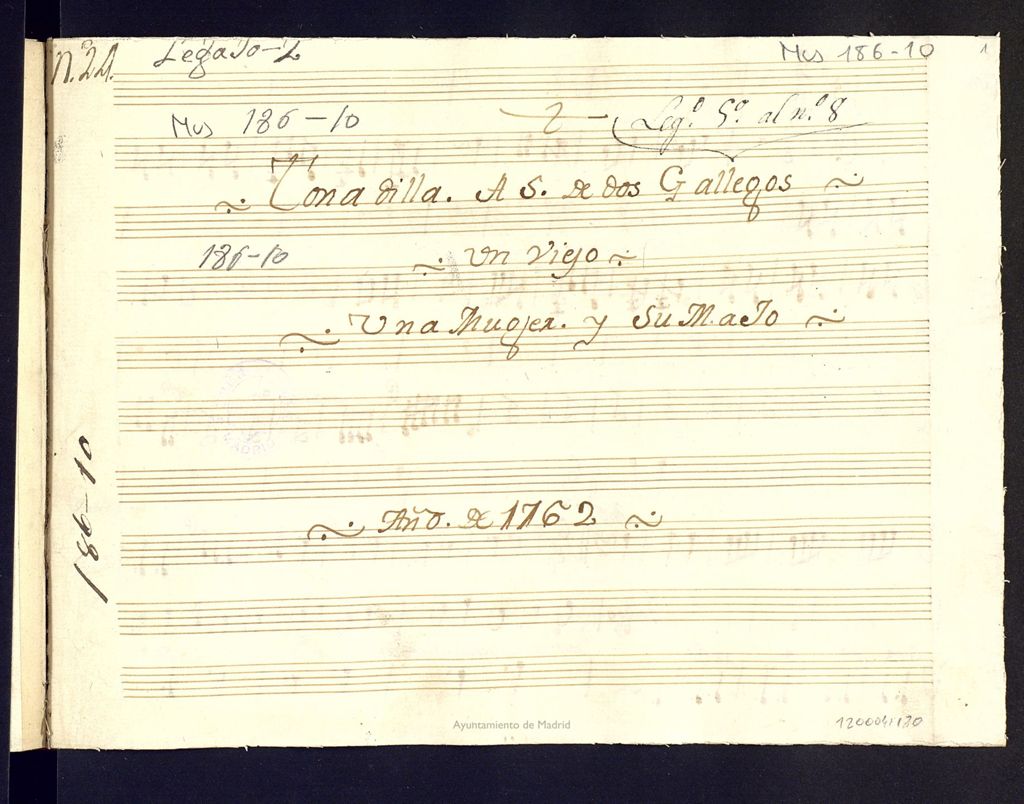 n. 21.
Legajo-2
Mus 186-10
1
Mus 186-10
2 -
Leg.º 5º. al n.º 8
Tonadilla. A 5. De dos Gallegos
186-10
Un Viejo
Una Mugjer. y Su MaJo
186-10
Año. De 1762
Ayuntamiento de Madrid